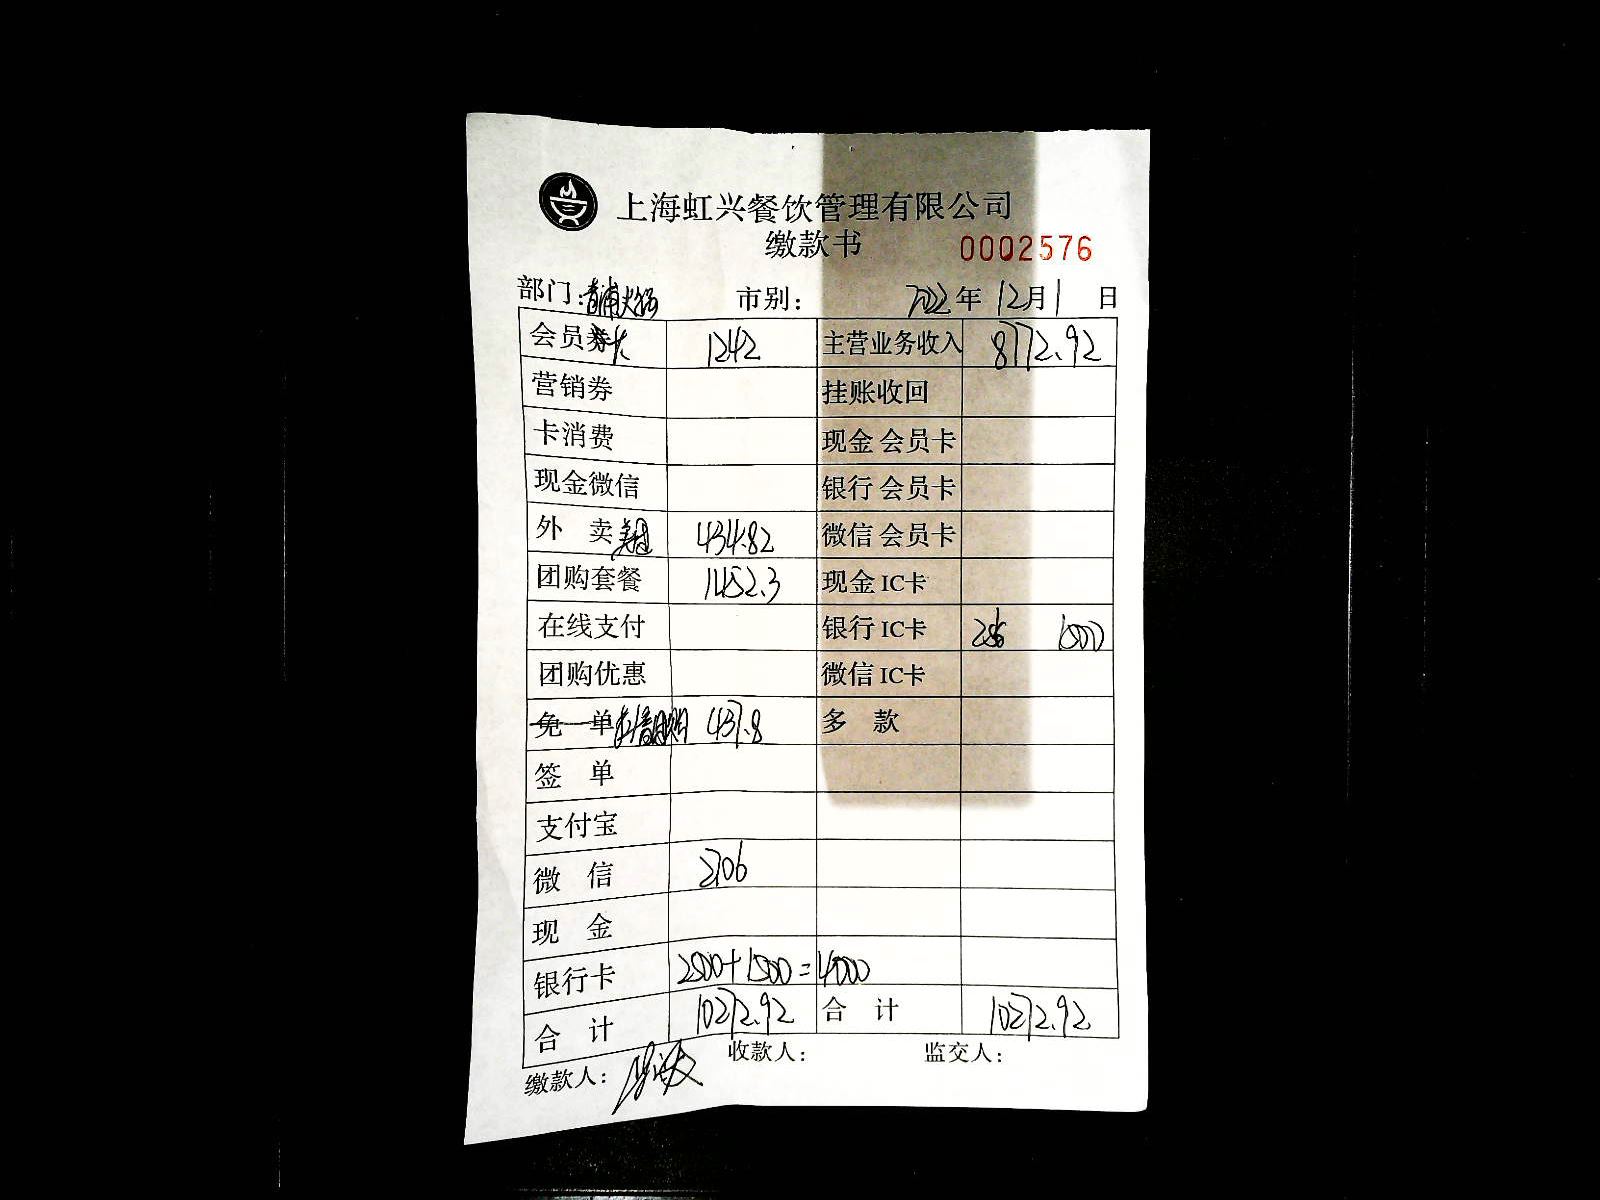 上海虹兴餐饮管理有限公司
缴款书 0002576
部门: 青浦火锅 市别: 2022年12月1日
会员卡 1242 主营业务收入 8772.92
营销券 挂账收回
卡消费 现金会员卡
现金微信 银行会员卡
外卖 美团 434.82 微信会员卡
团购套餐 1452.3 现金IC卡
在线支付 银行IC卡 1500
团购优惠 微信IC卡
免单 抖音团购 437.8 多款
签单
支付宝
微信 2706
现金
银行卡 2500+1500=4000
合计 10272.92 合计 10272.92
收款人: 监交人:
缴款人: